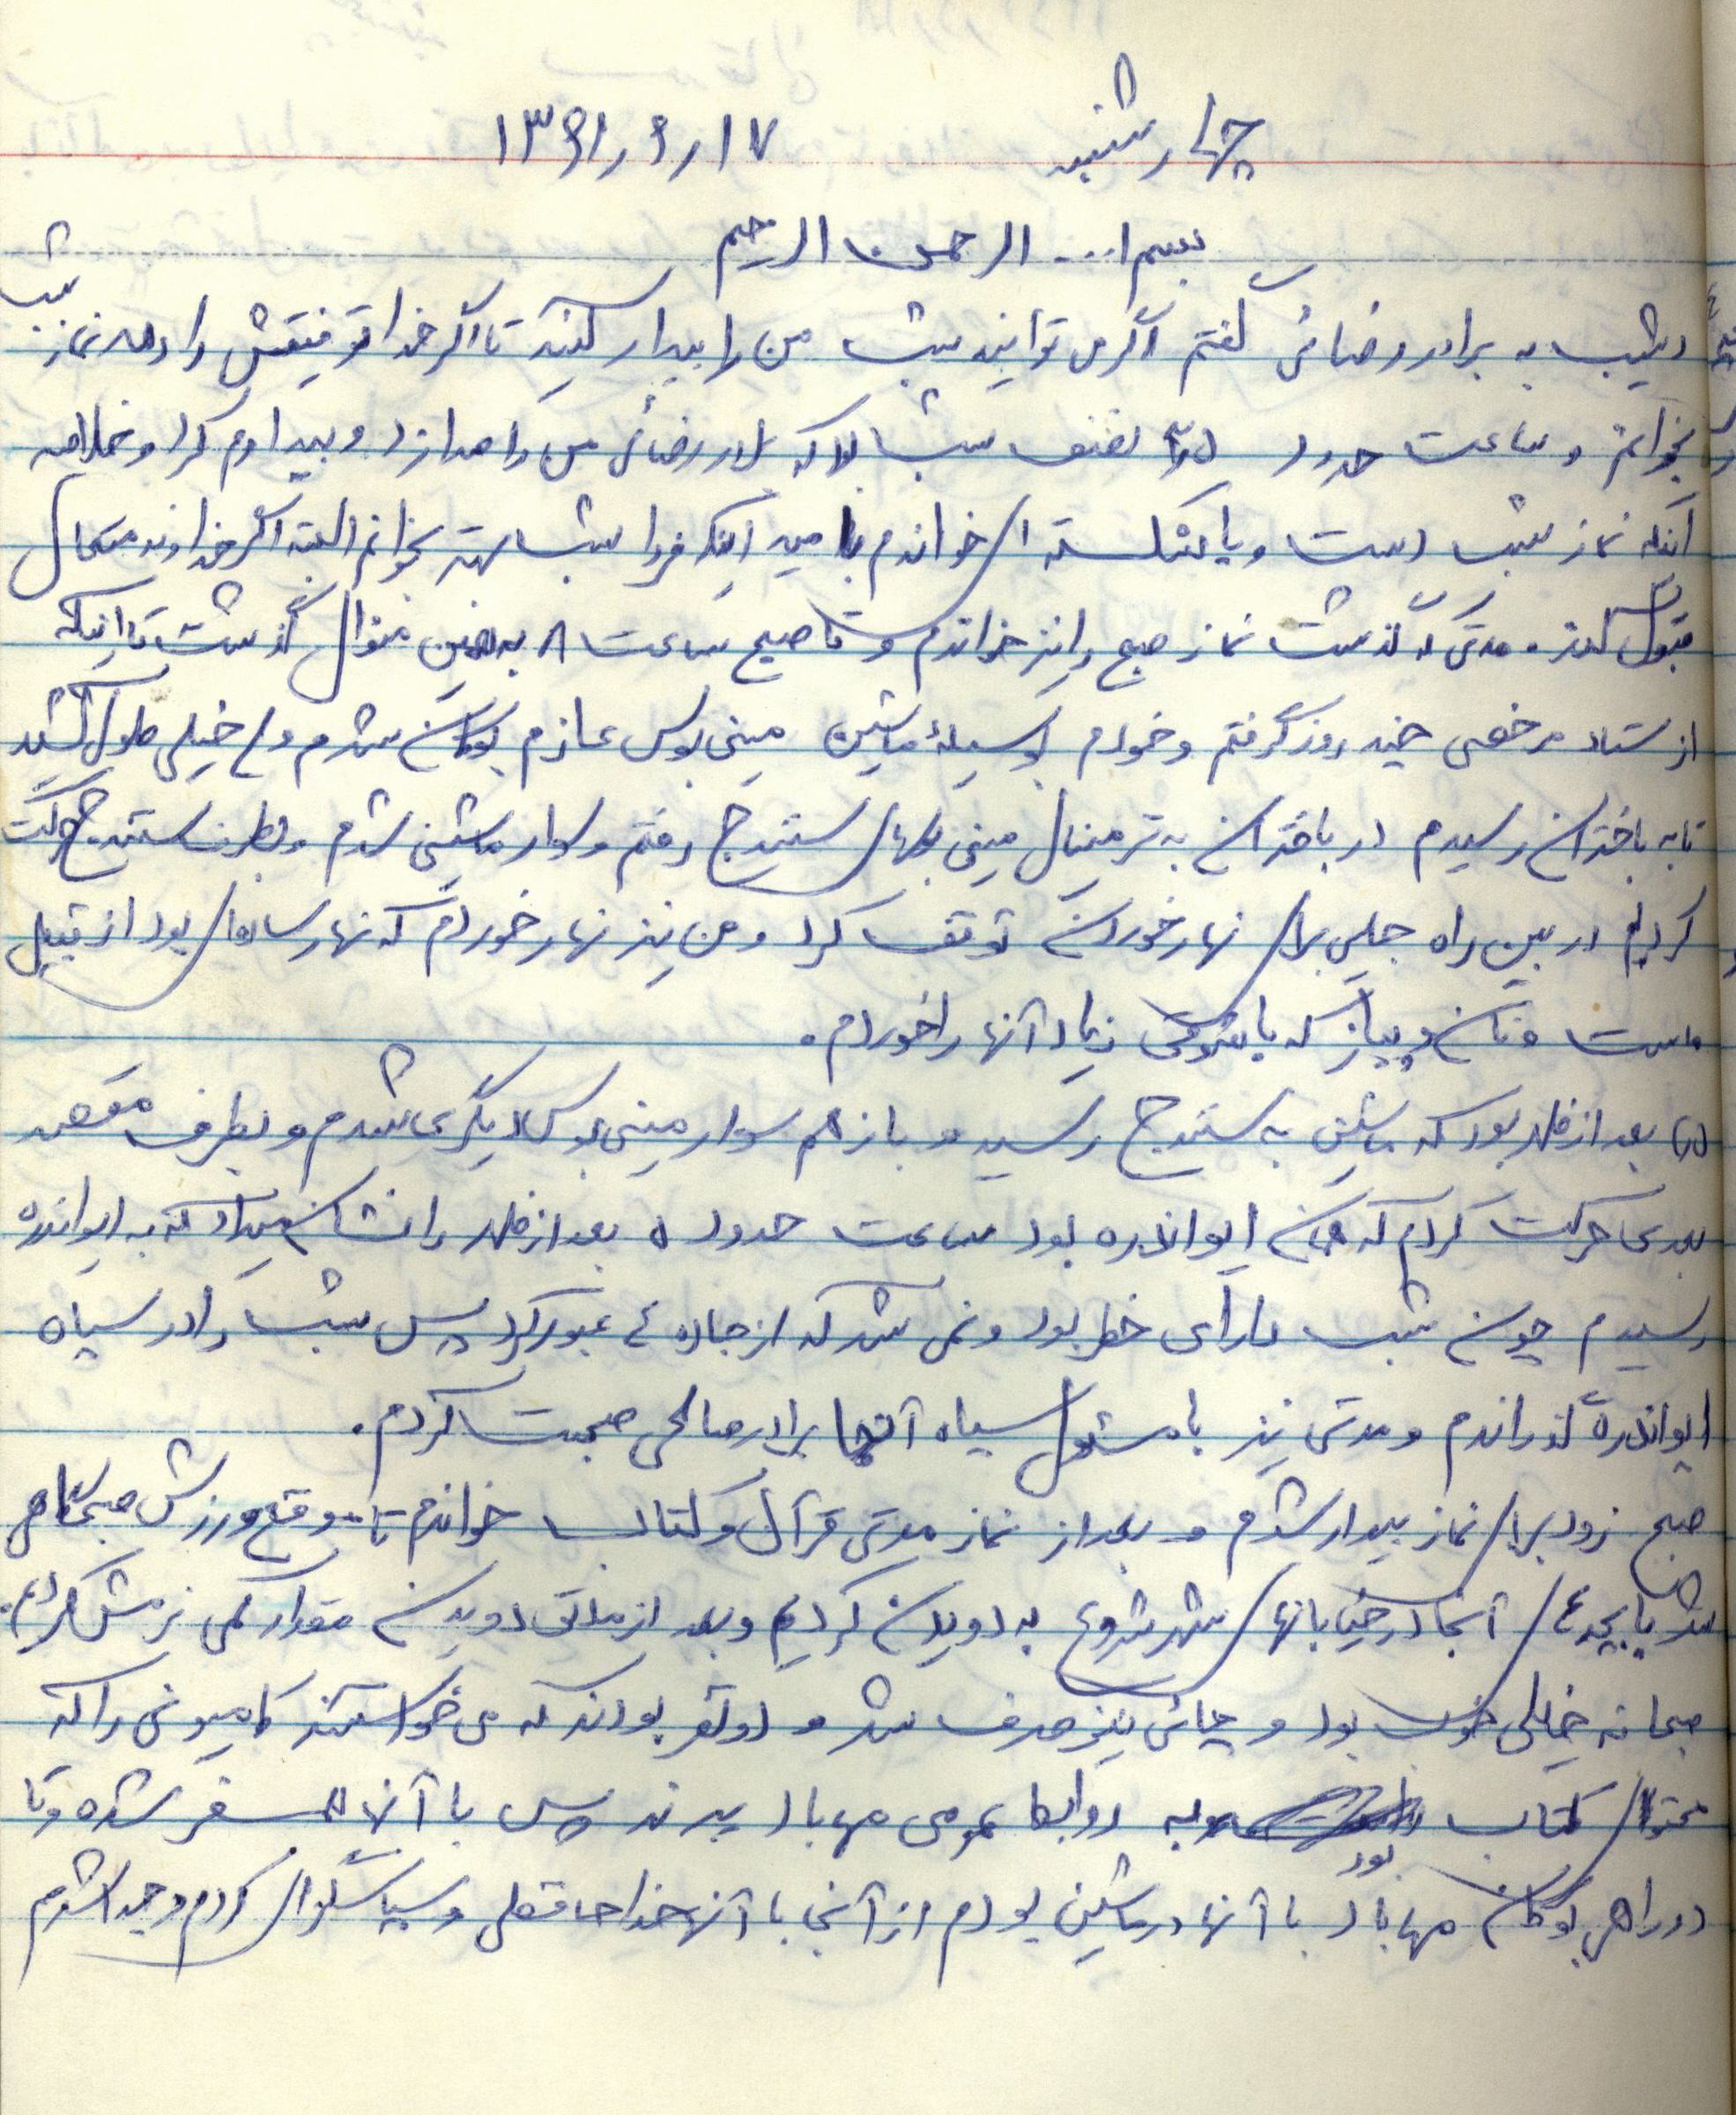 چهارشنبه ۱۳۶۱٫۹٫۱۷
بسم ا... الرحمن الرحیم
دیشب به برادر رضائی گفتم اگر می توانید شب من را بیدار کنید تا اگر خدا توفیقش را دهد نماز شب
بخوانم و ساعت حدود نصف شب بود که برادر رضائی من را صدا زد و بیدارم کرد و خلاصه
آنکه نماز شب دست و پا شکسته ای خواندم بامید اینکه فردا شب بهتر بخوانم البته اگر خداوند متعال
قبول کند. مدتی که گذشت نماز صبح را نیز خواندم و تا صبح ساعت ۸ به همین منوال گذشت تا اینکه
از ستاد مرخصی چند روزه گرفتم و خودم بوسیلهٔ ماشین مینی بوس عازم بوکان شدم ولی خیلی طول کشید
تا به باختران رسیدم در باختران به ترمینال مینی بوسهای سنندج رفتم و سوار ماشینی شدم و بطرف سنندج حرکت
کردم در بین راه جایی برای نهار خوردن توقف کرد و من نیز نهار خوردم که نهار ساده ای بود از قبیل
ماست و نان و پیاز که با شوقی زیاد آنها را خوردم.
بعد از ظهر بود که ماشین به سنندج رسید و باز هم سوار مینی بوس دیگری شدم و بطرف مقصد
بعدی حرکت کردم که همان دیواندره بود ساعت حدود ۵ بعد از ظهر را نشان میداد که به دیواندره
رسیدم چون شب دارای خطر بود و نمی شد که از جاده ها عبور کرد پس شب را در سپاه
دیواندره گذراندم و مدتی نیز با مسئول سپاه آنجا برادر صالحی صحبت کردم.
صبح زود برای نماز بیدار شدم و بعد از نماز مدتی قرآن و کتاب خواندم تا موقع ورزش صبحگاهی
شد با بچه های آنجا در خیابانهای شهر شروع به دویدن کردیم و بعد از مدتی دویدن مقدار کمی نرمش کردیم.
صبحانه خیلی خوب بود و چائی نیز صرف شد و دو نفر بودند که می خواستند کامیونی را که
محتوای کتاب بود به روابط عمومی مهاباد ببرند پس با آنها همسفر شده و تا
دو راهی بوکان مهاباد با آنها در ماشین بودم از آنجا با آنها خداحافظی و سپاسگزاری کردم و جدا شدم